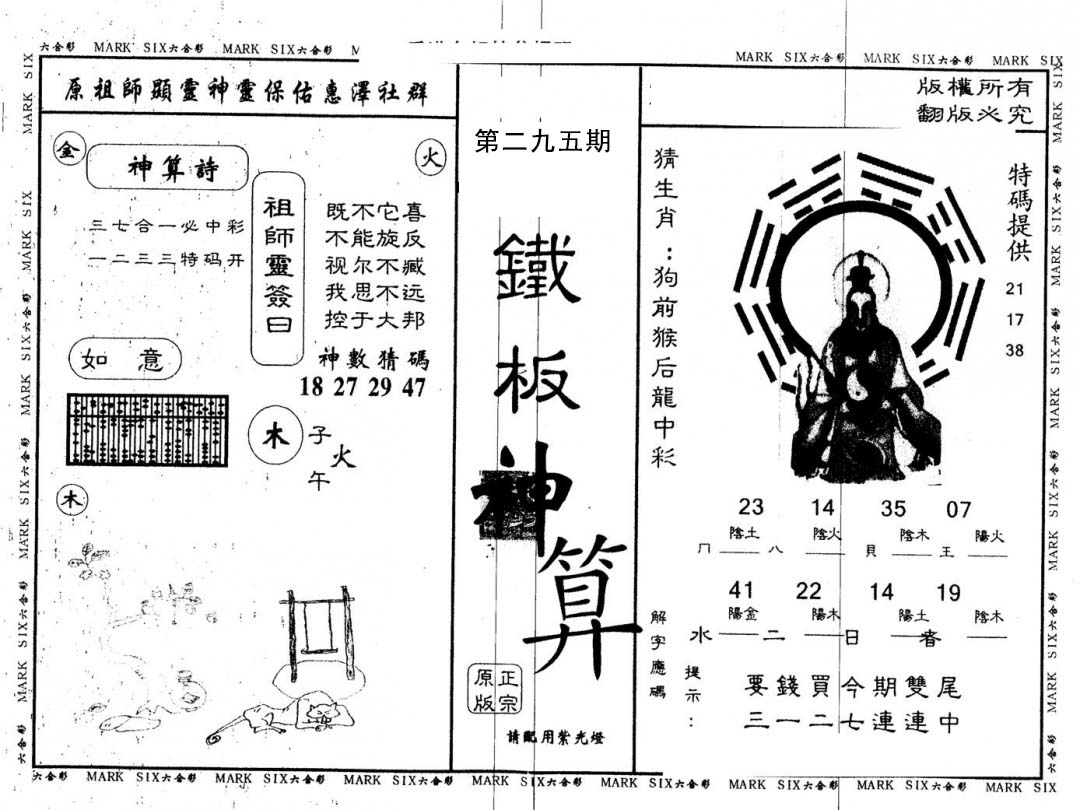 六合彩 MARK SIX六合彩 MARK SIX六合彩 M
MARK SIX六合彩 MARK SIX六合彩 MARK SIX
原祖師顯靈神靈保佑惠澤社群
金
神算詩
火
三七合一必中彩
一二三三特码开
祖師靈簽曰
既不它喜
不能旋反
视尔不臧
我思不远
控于大邦
神數猜碼
18 27 29 47
如意
木
子
火
午
木
第二九五期
鐵板神算
正宗
原版
請配用紫光燈
版權所有
翻版必究
猜生肖:狗前猴后龍中彩
特碼提供
21
17
38
23 14 35 07
陰土 陰火 陰木 陽火
八 貝 王
41 22 14 19
陽金 陽木 陽土 陰木
水 二 日 春
解字應碼
提示:
要錢買今期雙尾
三一二七連連中
六合彩 MARK SIX六合彩 MARK SIX六合彩 MARK SIX六合彩 MARK SIX六合彩 MARK SIX六合彩 MARK SIX六合彩 MARK SIX六合彩 MARK SIX